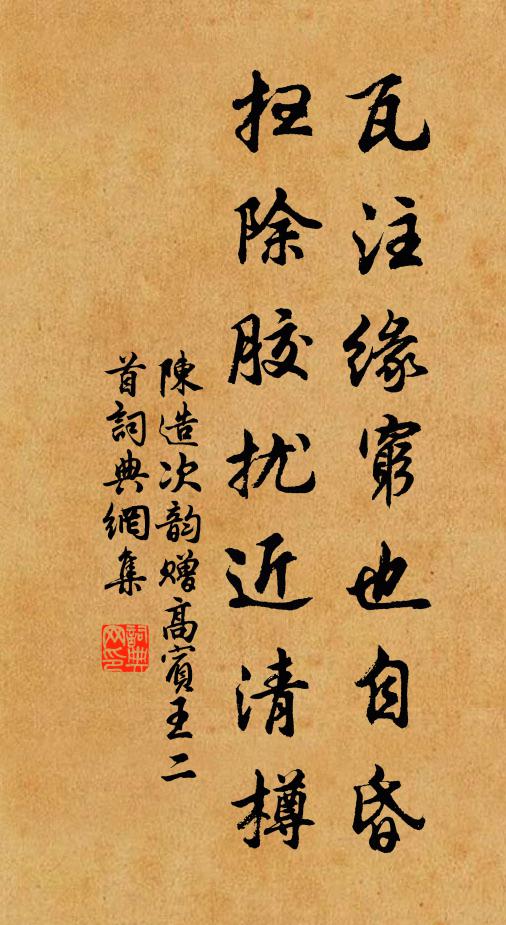 瓦注緣窮也自昏
扫除胶扰近清樽
陳造次韵赠高賓王二
首詞典網集
詞典
网印